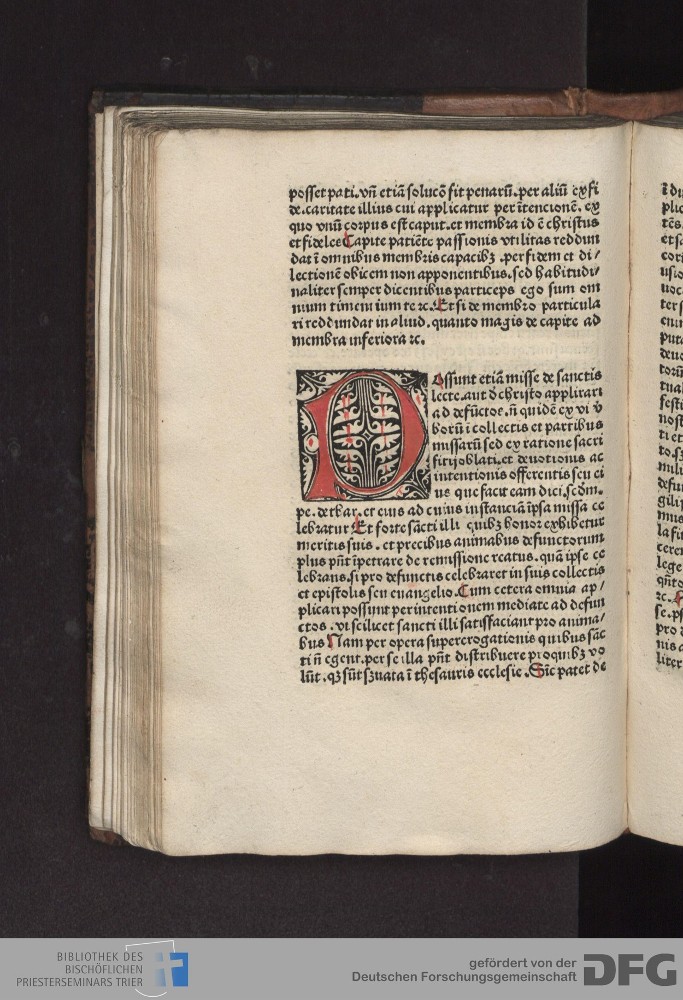 posset pati. vn̄ etiā solucō fit penarū. per aliū exſi
de. caritate illius cui applicatur per ītencionē. ex
quo vnū corpus est caput. et membra id ē christus
et fideles Capite patiēte passionis vtilitas reddun
dat ī omnibus membris capacibꝫ. per fidem et di/
lectionē obicem non apponentibus. sed habitudi/
naliter semper dicentibus particeps ego sum om
nium timentium te ⁊c. Et si de membro particula
ri reddundat in aliud. quanto magis de capite ad
membra inferiora ⁊c.
POssunt etiā misse de sanctis
lecte. aut d̄ christo applicari
ad defūctos. n̄ quidē ex vi v̄
borū ī collectis et partibus
missarū sed ex ratione sacri
ficij oblati. et deuotionis ac
intentionis offerentis seu ei
us que facit eam dici. scd̄m.
pe. de thar. et eius ad cuius instanciā ipsa missa ce
lebratur Et forte sācti illi quibꝫ honor exhibetur
meritis suis. et precibus animabus defunctorum
plus pn̄t īpetrare de remissione reatus. quā ipse ce
lebrans. si pro defunctis celebraret in suis collectis
et epistolis seu euangelio. Cum cetera omnia ap/
plicari possunt per intentionem mediate ad defun
ctos. vt scilicet sancti illi satisfaciant pro anima/
bus Nam per opera supererogationis quibus sāc
ti n̄ egent. per se illa pn̄t distribuere pro quibꝫ vo
lūt. qꝫ sūt ẜuata ī thesauris ecclesie. Sic patet de
BIBLIOTHEK DES
BISCHÖFLICHEN
PRIESTERSEMINARS TRIER
gefördert von der
Deutschen Forschungsgemeinschaft
DFG